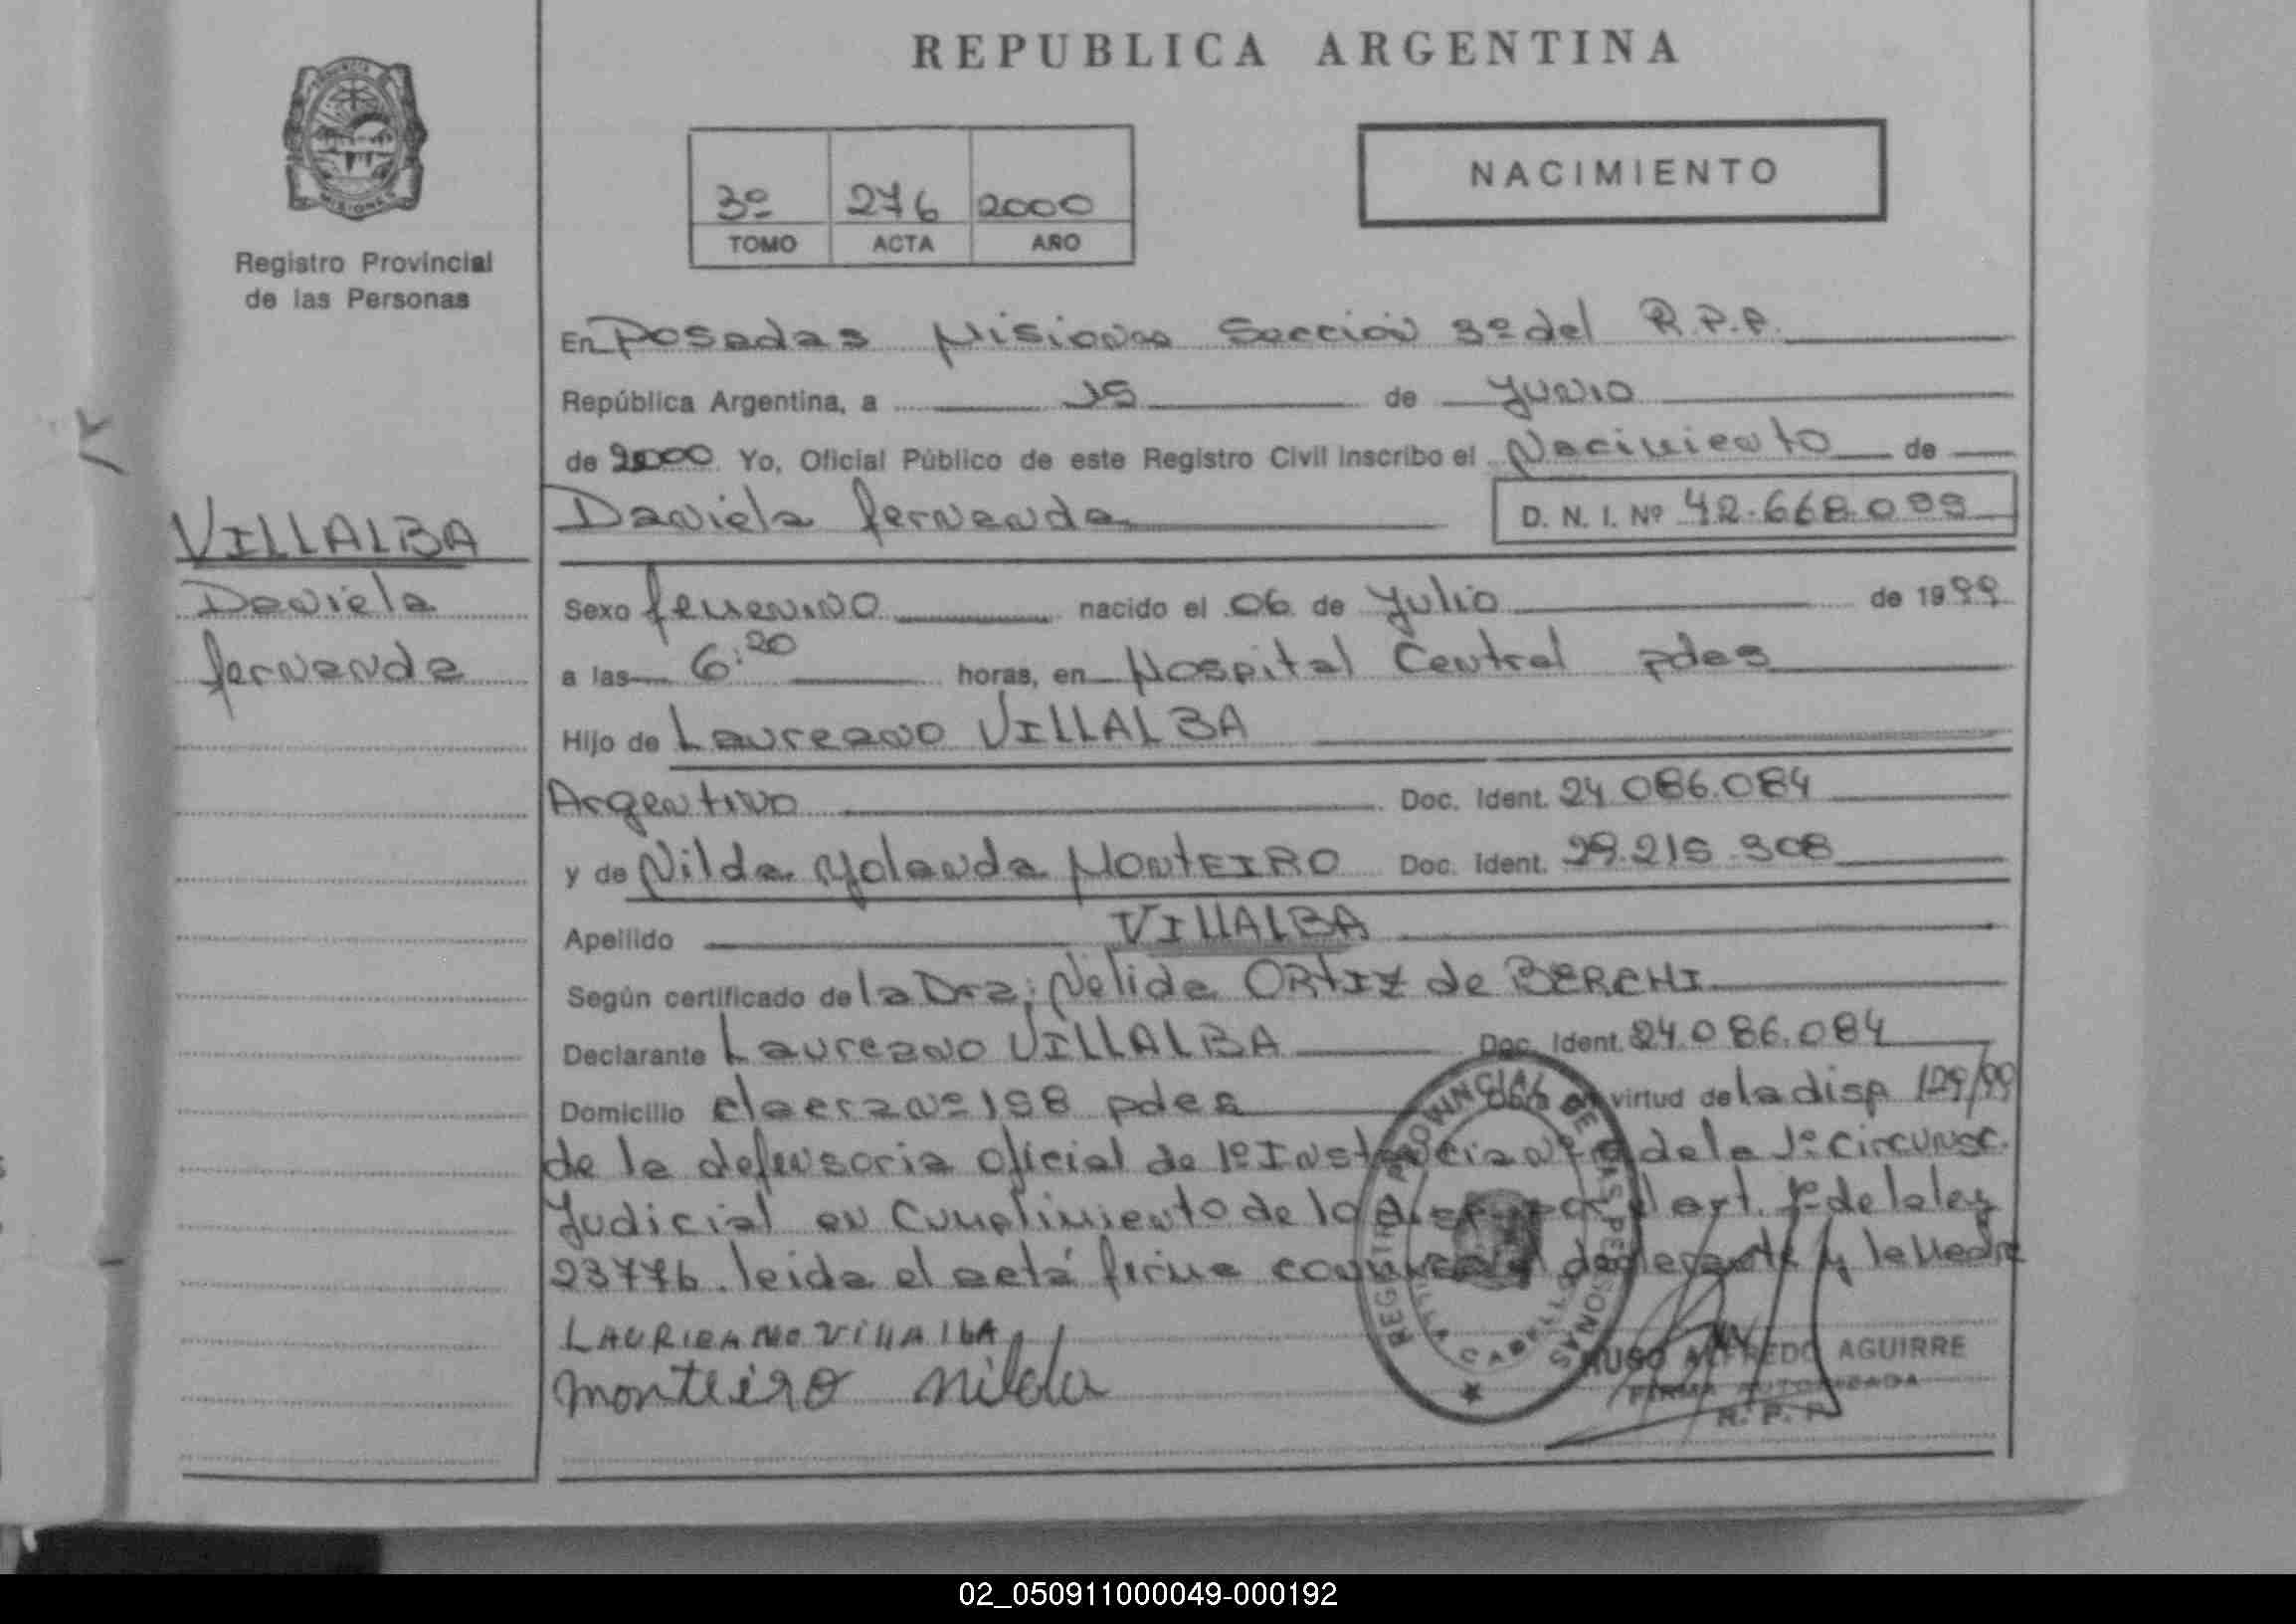 REPUBLICA ARGENTINA
NACIMIENTO
3º 276 2000
TOMO ACTA AÑO
Registro Provincial
de las Personas
VILLALBA
Daniela
fernanda
En Posadas Misiones Sección 3º del R.P.P.
República Argentina, a 15 de Junio
de 2000 Yo, Oficial Público de este Registro Civil inscribo el Nacimiento de
Daniela fernanda D. N. I. Nº 42.668.099
Sexo femenino nacido el 06 de Julio de 1999
a las 6:20 horas, en Hospital Central pdas
Hijo de Laureano VILLALBA
Argentino Doc. Ident. 24 086.084
y de Nilda Yolanda MONTEIRO Doc. Ident. 29.215.308
Apellido VILLALBA
Según certificado de la Dra; Nelida ORTIZ de BERCHI
Declarante Laureano VILLALBA Doc. Ident. 24.086.084
Domicilio chacra nº 198 pdas Obra en virtud de la disp 129/99
de la defensoria oficial de 1º Instancia de la 1º Circunsc.
Judicial en cumplimiento de lo disp por el art. de la ley
23776. leida el acta firma conmigo el declarante y la Madre
LAURIEANO VILLALBA
monteiro nilda
REGISTRO PROVINCIAL DE LAS PERSONAS
HUGO ALFREDO AGUIRRE
FIRMA AUTORIZADA
R. P. P.
MISIONES
02_050911000049-000192